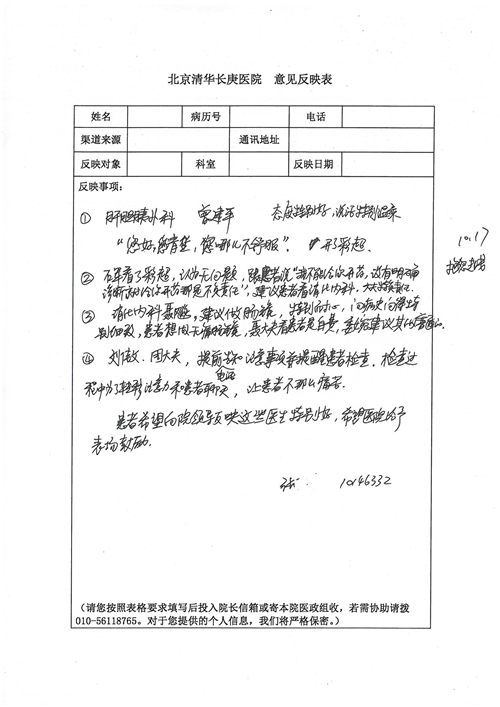 北京清华长庚医院 意见反映表
姓名 病历号 电话
渠道来源 通讯地址
反映对象 科室 反映日期
反映事项：
① 肝胆胰外科 曾建平 态度特别好，说话特别温柔
“您好，您请坐，您哪儿不舒服”。 开了彩超
10.17
② 看了彩超，认为无问题，跟患者说“我不能给你开药，没有明确
诊断我给你开药那是不负责任”，建议患者看消化内科，
③ 消化内科 建议做肠镜，特别细心，问病史问得特
别细致，患者想用无痛肠镜，
④ 刘 周大夫，提前告知注意事项并提醒患者检查。检查过
程中为了转移注意力和患者聊天，让患者不那么痛苦。
患者希望向院领导反映这些医生特别好，希望医院给予
表扬鼓励。
10146332
（请您按照表格要求填写后投入院长信箱或寄本院医政组收，若需协助请拨
010-56118765。对于您提供的个人信息，我们将严格保密。）